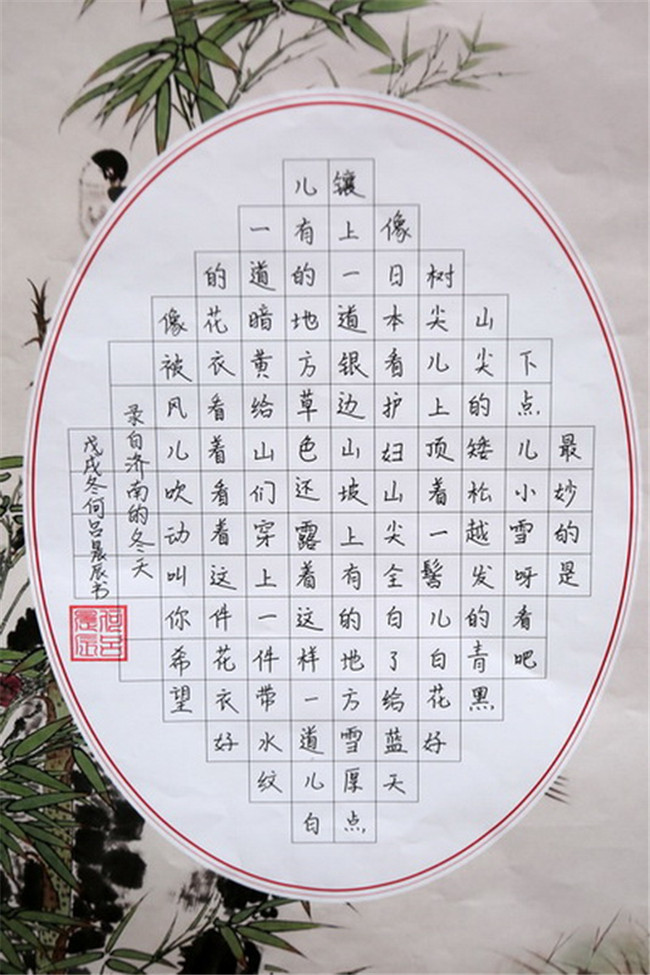 最妙的是
下点儿小雪呀看吧
山尖的矮松越发的青黑
树尖儿上顶着一髻儿白花好
像日本看护妇山尖全白了给蓝天
镶上一道银边山坡上有的地方雪厚点
儿有的地方草色还露着这样一道儿白
一道暗黄给山们穿上一件带水纹
的花衣看着看着这件花衣好
像被风儿吹动叫你希望
录自济南的冬天
戊戌冬何吕晨辰书
何吕晨辰